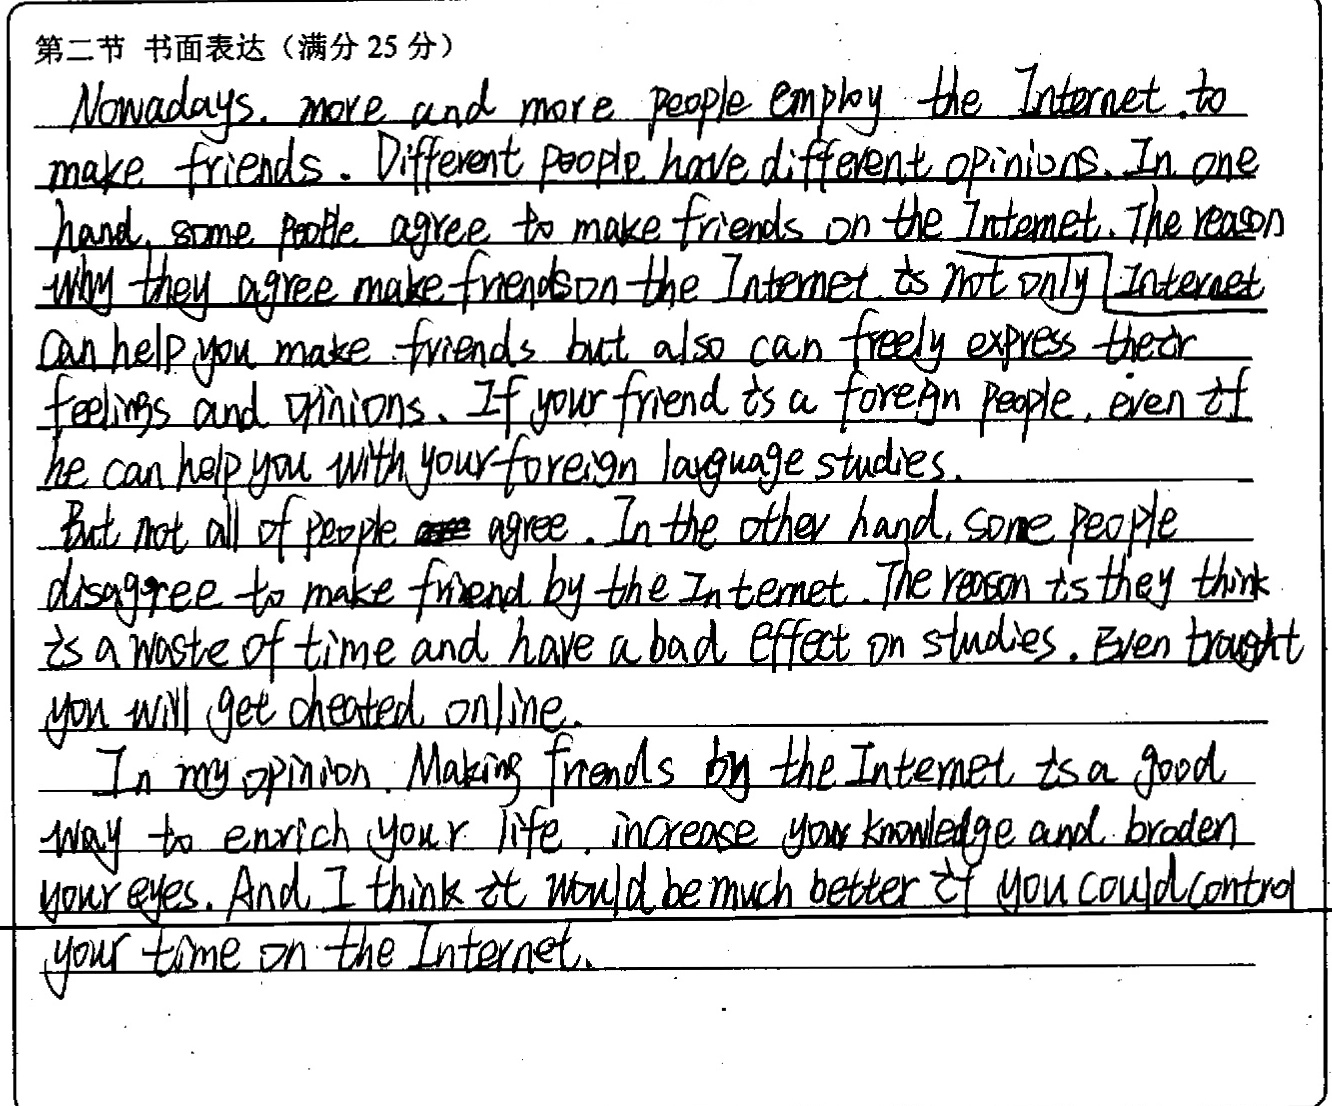 第二节 书面表达（满分 25 分）
Nowadays. more and more people employ the Internet to
make friends. Different people have different opinions. In one
hand, some people agree to make friends on the Internet. The reason
why they agree make friends on the Internet is not only Internet
can help you make friends but also can freely express their
feelings and opinions. If your friend is a foreign people, even if
he can help you with your foreign language studies.
But not all of people agree. In the other hand, some people
disagree to make friend by the Internet. The reason is they think
is a waste of time and have a bad effect on studies. Even trought
you will get cheated online.
In my opinion. Making friends by the Internet is a good
way to enrich your life. increase your knowledge and broden
your eyes. And I think it would be much better if you could control
your time on the Internet.